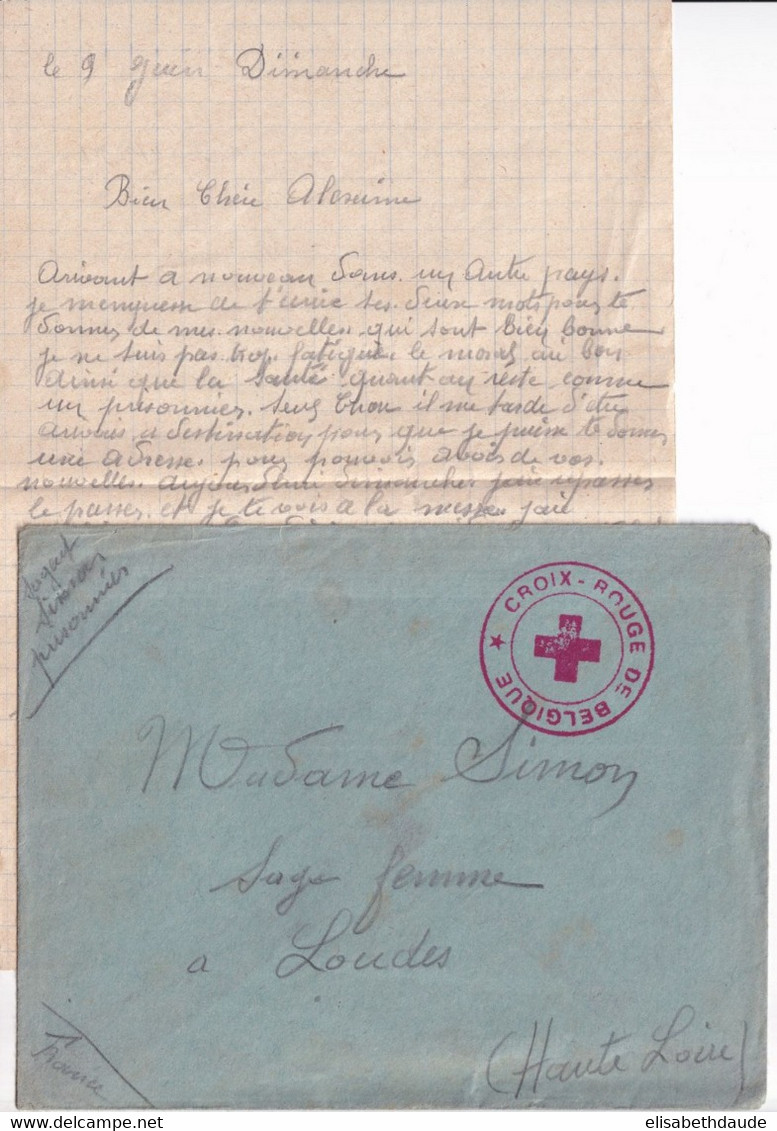 le 9 Juin Dimanche
Bien Chère
Arivant a nouveau dans un Autre pays.
je menpresse de t'ecrire ses deux mots pour te
donner de mes nouvelles qui sont Bien bonne
je ne suis pas trop fatigué. le moral au bon
ainsi que la Santé quant au réste comme
un prisonnier. Seul Chou il me tarde d'être
arivais a destination pour que je puisse te donner
une Adresse pour pouvoir avoir de vos
nouvelles. aujourdhui dimanche jaie repasser
le passer et je te vois a la messe jaie
Simon
prisonnier
CROIX-ROUGE DE BELGIQUE
Madame Simon
Sage femme
a Loudes
(Haute Loire)
France
elisabethdaude